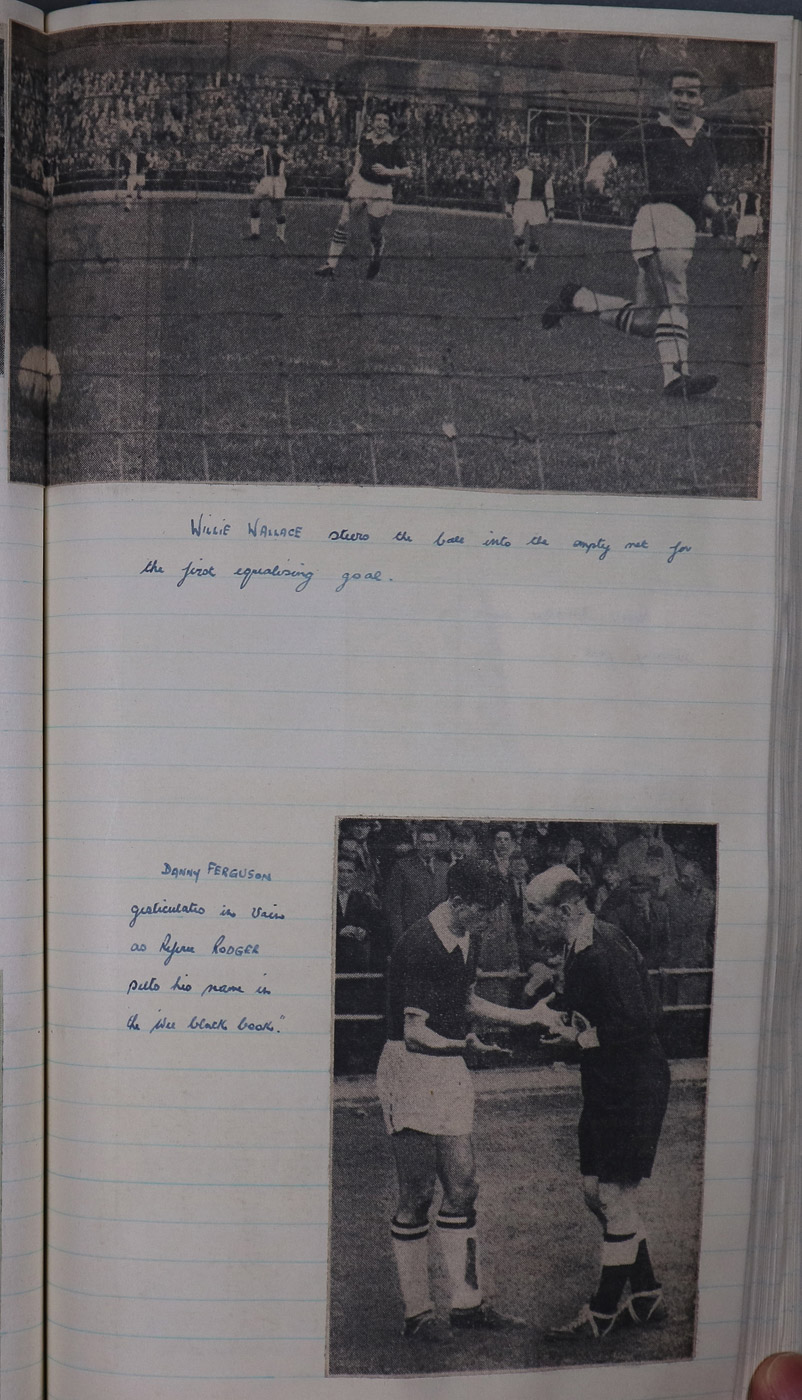 WILLIE WALLACE steers the ball into the empty net for
the first equalising goal.
DANNY FERGUSON
gesticulates in vain
as Referee RODGER
puts his name in
the "wee black book."